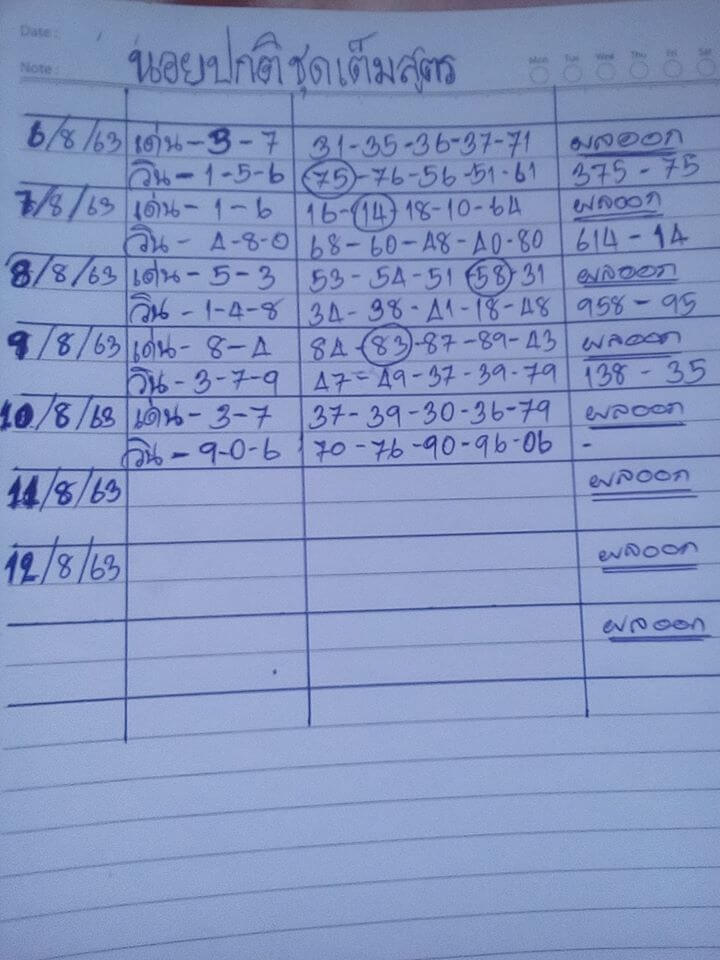 Date :
Note :
Mon Tue Wed Thu Fri Sat
นอยปกติชุดเต็มสูตร
6/8/63 เด่น-3-7 31-35-36-37-71 ผลออก
วิน-1-5-6 75-76-56-51-61 375-75
7/8/63 เด่น-1-6 16-14-18-10-64 ผลออก
วิน-4-8-0 68-60-48-40-80 614-14
8/8/63 เด่น-5-3 53-54-51 58-31 ผลออก
วิน-1-4-8 34-38-41-18-48 958-95
9/8/63 เด่น-8-4 84-83-87-89-43 ผลออก
วิน-3-7-9 47-49-37-39-79 138-35
10/8/63 เด่น-3-7 37-39-30-36-79 ผลออก
วิน-9-0-6 70-76-90-96-06 -
11/8/63 ผลออก
12/8/63 ผลออก
ผลออก